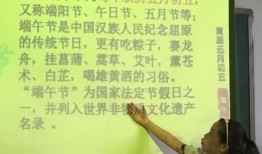 又称端阳节、午日节、五月节等;
端午节是中国汉族人民纪念屈原
的传统节日,更有吃粽子,赛龙
舟,挂菖蒲、蒿草、艾叶,薰苍
术、白芷,喝雄黄酒的习俗。
“端午节”为国家法定节假日之
一,并列入世界非物质文化遗产
名录。
农历五月初五